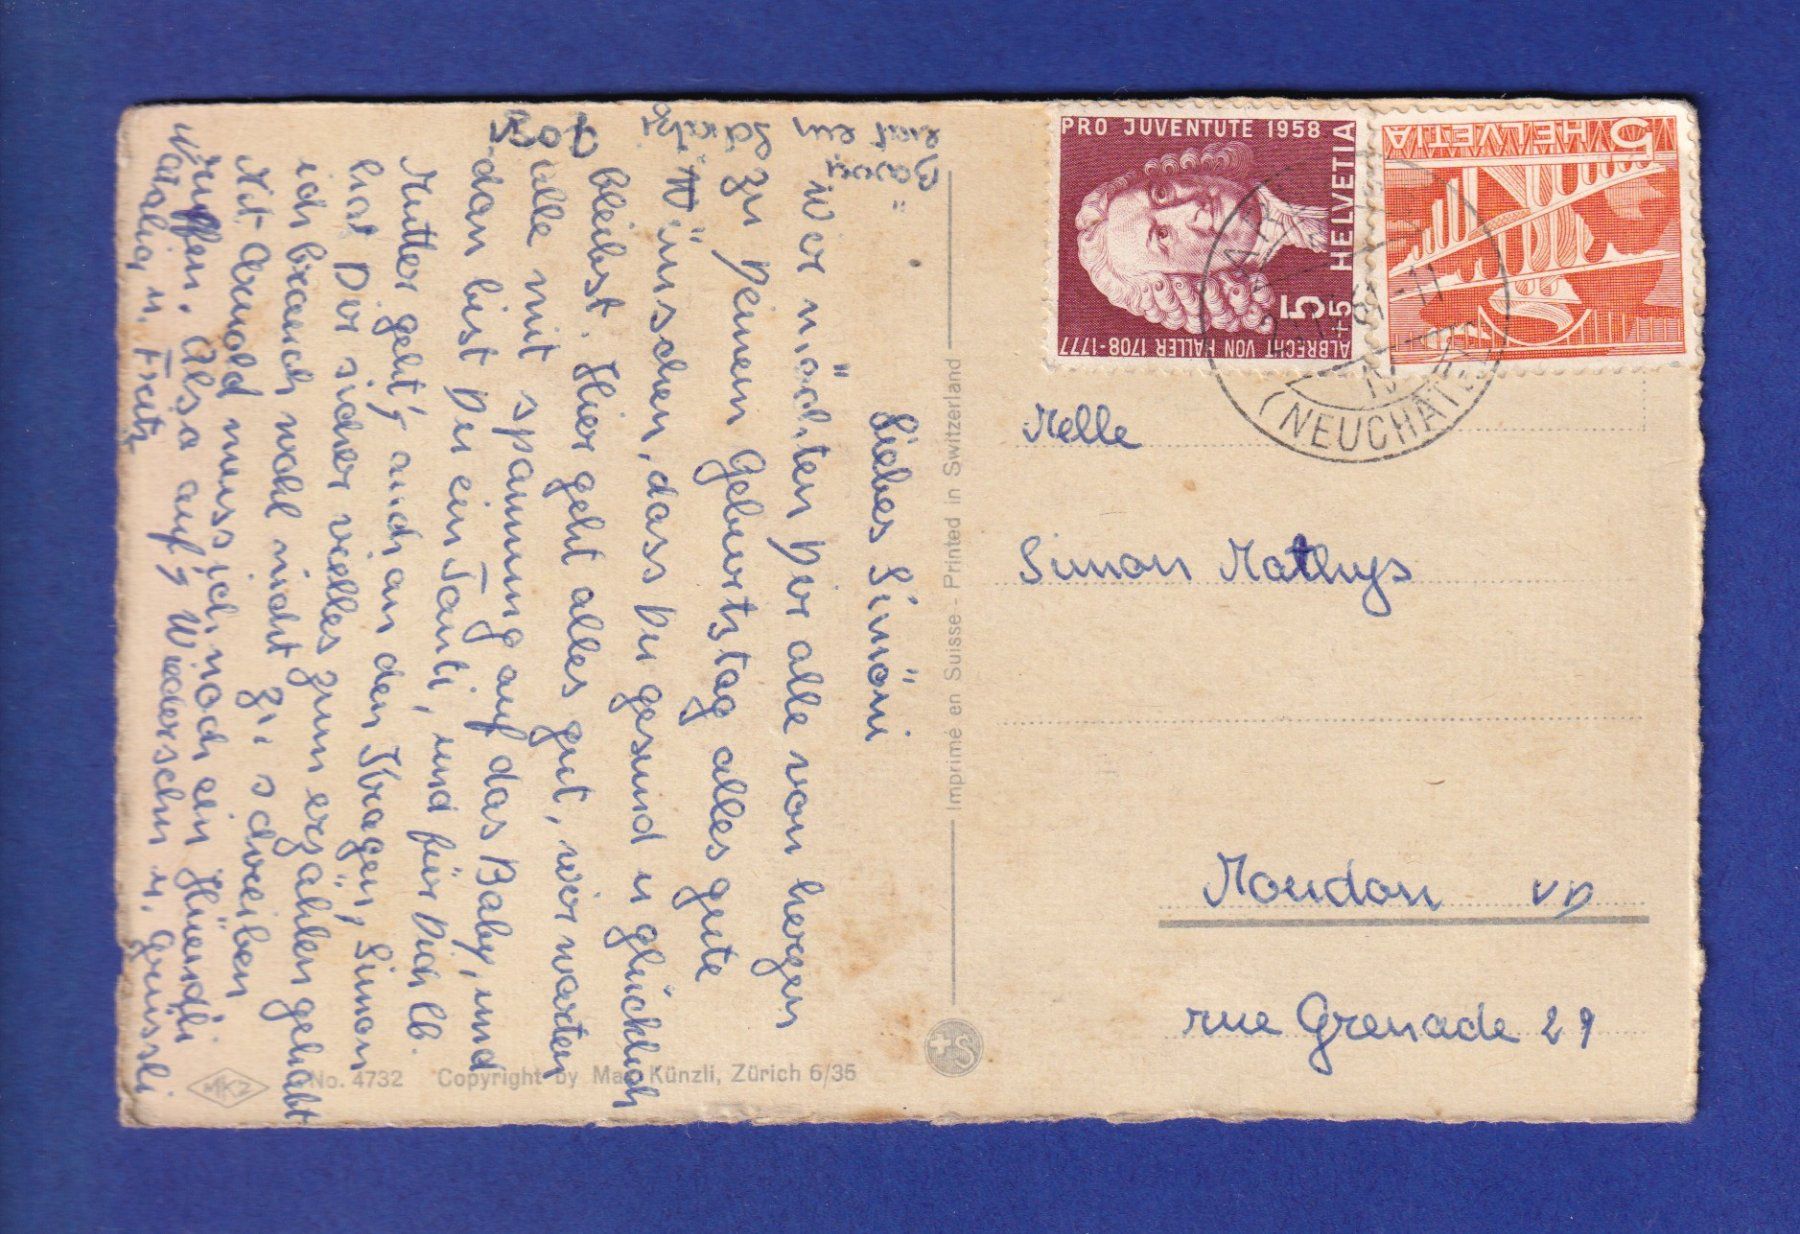 Liebes Simöni
Wir möchten Dir alle von herzen
zu Deinem Geburtstag alles gute
Wünschen, dass Du gesund u glücklich
bleibst. Hier geht alles gut, wir warten
alle mit spannung auf das Baby, und
dan bist Du ein Tanti, und für Dich lb.
Mutter geht's auch an den Kragen, Simon
hat Dir sicher vieles zum erzählen gehabt
ich brauch wohl nicht zu schreiben
Mit Arnold muss ich noch ein Hüendli
rupfen. Also auf Wiedersehn u. grüssli
Natalia u. Fritz
Bozy
hat ein
PRO JUVENTUTE 1958
HELVETIA
5+5
ALBRECHT VON HALLER 1708-1777
HELVETIA
5
(NEUCHÂTEL)
Melle
Simon Mathys
Moudon VD
rue Grenade 29
Imprimé en Suisse - Printed in Switzerland
MKZ
No. 4732 Copyright by Max Künzli, Zürich 6/35